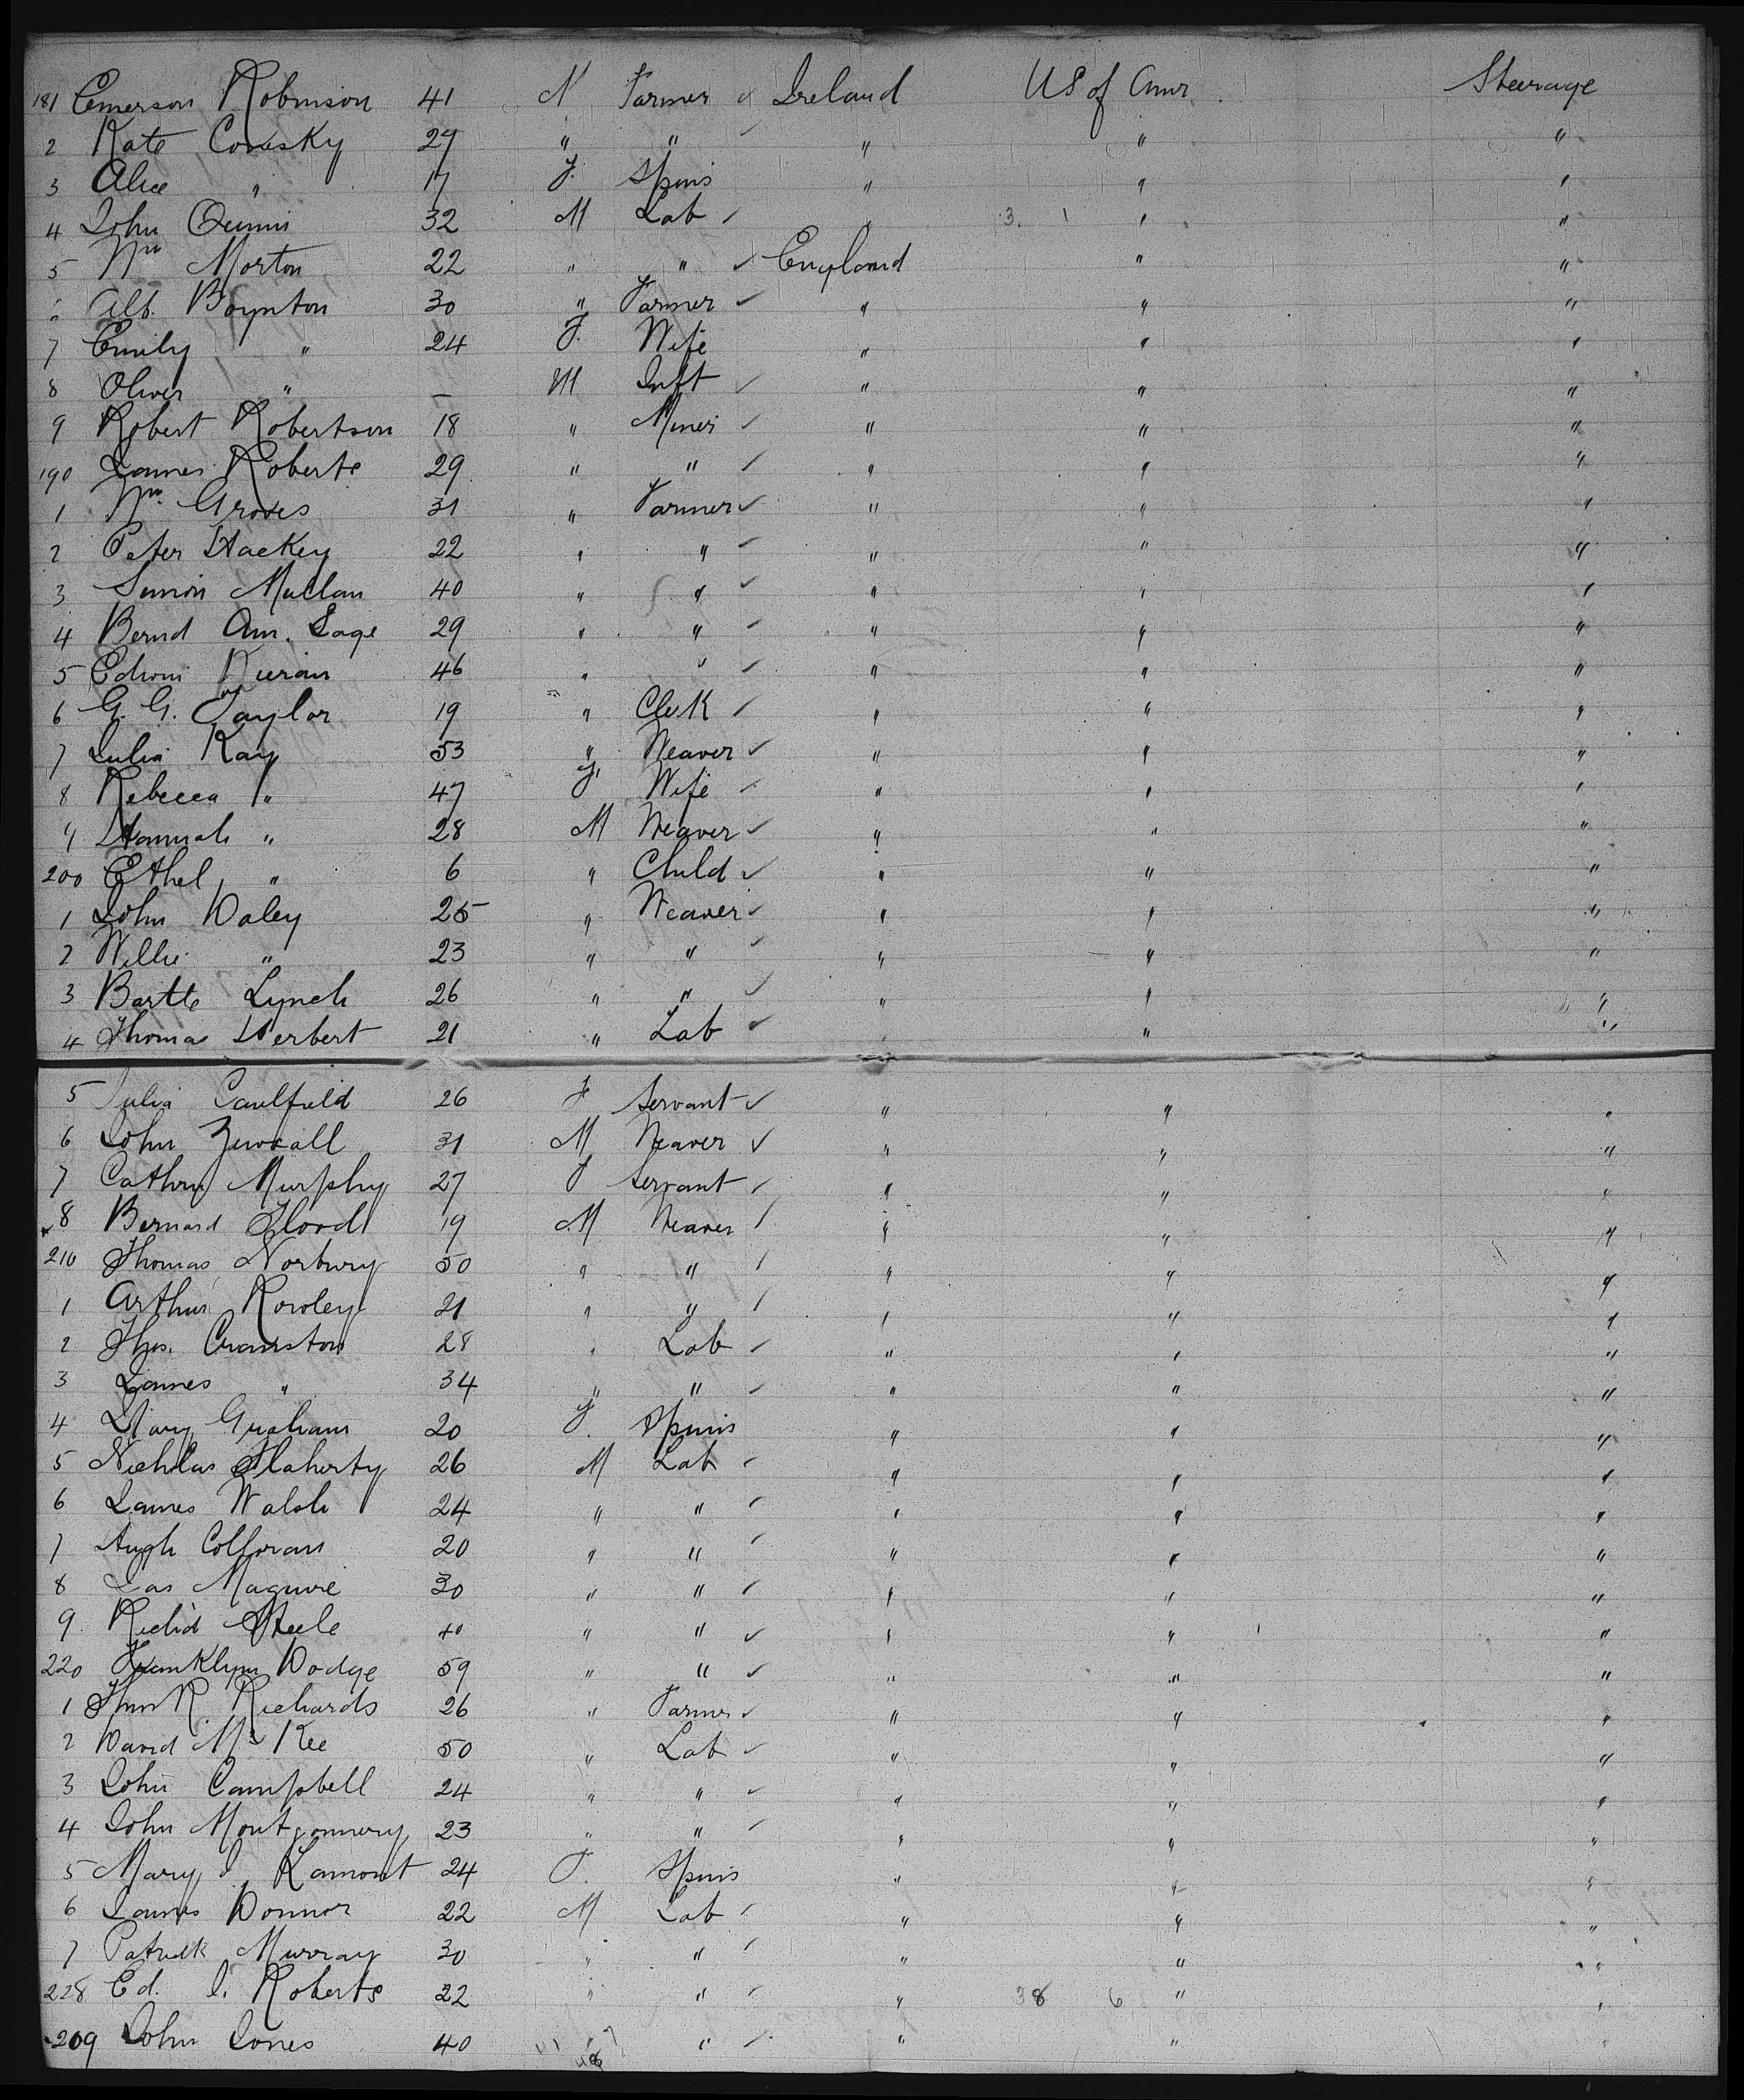 181 Emerson Robinson 41 M Farmer ✓ Ireland US of Amr Steerage
2 Kate Comsky 27 " " ✓ " " "
3 Alice " 17 F. Spins " " "
4 John Quinn 32 M Lab ✓ " 3. 1 " "
5 Wm Morton 22 " " ✓ England " "
6 Alb. Boynton 30 " Farmer ✓ " " "
7 Emily " 24 F. Wife " " "
8 Oliver " – M Inft ✓ " " "
9 Robert Robertson 18 " Miner ✓ " " "
190 James Roberts 29 " " ✓ " " "
1 Wm Groves 31 " Farmer ✓ " " "
2 Peter Hackey 22 " " ✓ " " "
3 Simon 40 " " ✓ " " "
4 Bernd Am. Sage 29 " " ✓ " " "
5 Edwin 46 " " ✓ " " "
6 G. G. Taylor 19 " Clerk ✓ " " "
7 Julia Kay 53 " Weaver ✓ " " "
8 Rebecca " 47 F. Wife ✓ " " "
9 Hannah " 28 M Weaver ✓ " " "
200 Ethel " 6 " Child ✓ " " "
1 John Daley 25 " Weaver ✓ " " "
2 Willie " 23 " " ✓ " " "
3 Bartle Lynch 26 " " ✓ " " "
4 Thomas Herbert 21 " Lab ✓ " " "
5 Julia Caulfield 26 F Servant ✓ " " "
6 John 31 M Weaver ✓ " " "
7 Cathrn Murphy 27 F Servant ✓ " " "
8 Bernard Flood 19 M Weaver ✓ " " "
210 Thomas Norbury 50 " " ✓ " " "
1 Arthur Rowley 21 " " ✓ " " "
2 Thos. Cranston 28 " Lab ✓ " " "
3 James " 34 " " ✓ " " "
4 Mary Graham 20 F. Spins " " "
5 Nicholas Flaherty 26 M Lab ✓ " " "
6 James Walsh 24 " " ✓ " " "
7 Hugh Colloran 20 " " ✓ " " "
8 Jas Maguire 30 " " ✓ " " "
9 Richd Steele 40 " " ✓ " " "
220 Franklyn Dodge 59 " " ✓ " " "
1 R. Richards 26 " Farmer ✓ " " "
2 David McKee 50 " Lab ✓ " " "
3 John Campbell 24 " " ✓ " " "
4 John Montgomery 23 " " ✓ " " "
5 Mary J. Lamont 24 F. Spins " " "
6 James Donnor 22 M Lab ✓ " " "
7 Patrick Murray 30 " " ✓ " " "
228 Ed. J. Roberts 22 " " ✓ " 38 6 " "
209 John Jones 40 " " ✓ " " "